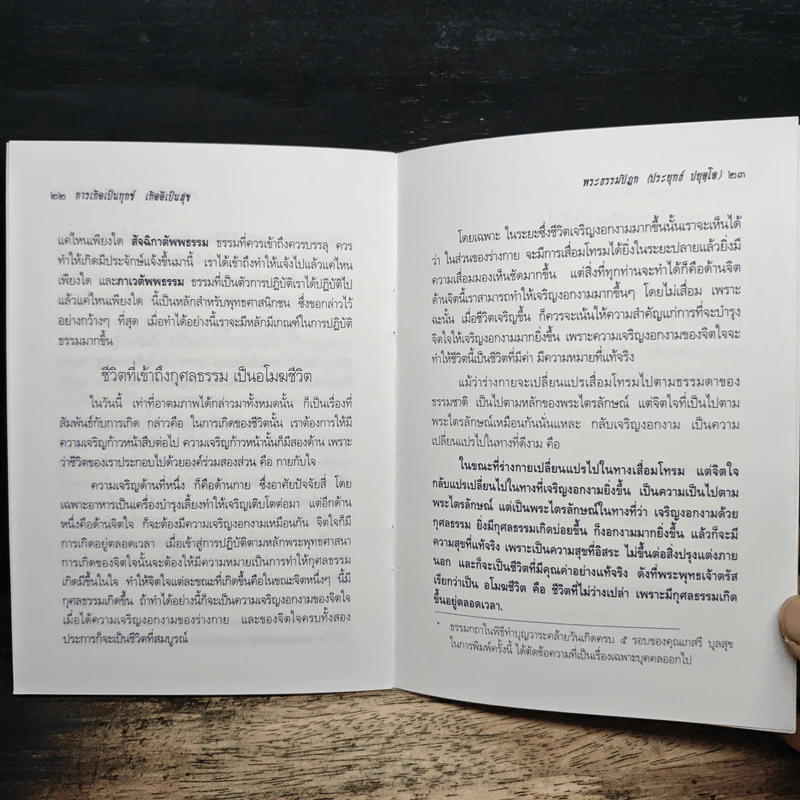 ๒๒ การเกิดเป็นทุกข์ เกิดดีเป็นสุข
แค่ไหนเพียงใด สัจฉิกาตัพพธรรม ธรรมที่ควรเข้าถึงควรบรรลุ ควร
ทำให้เกิดมีประจักษ์แจ้งขึ้นมานี้ เราได้เข้าถึงทำให้แจ้งไปแล้วแค่ไหน
เพียงใด และภาเวตัพพธรรม ธรรมที่เป็นตัวการปฏิบัติเราได้ปฏิบัติไป
แล้วแค่ไหนเพียงใด นี้เป็นหลักสำหรับพุทธศาสนิกชน ซึ่งขอกล่าวไว้
อย่างกว้างๆ ที่สุด เมื่อทำได้อย่างนี้เราจะมีหลักมีเกณฑ์ในการปฏิบัติ
ธรรมมากขึ้น
ชีวิตที่เข้าถึงกุศลธรรม เป็นอโมฆชีวิต
ในวันนี้ เท่าที่อาตมภาพได้กล่าวมาทั้งหมดนั้น ก็เป็นเรื่องที่
สัมพันธ์กับการเกิด กล่าวคือ ในการเกิดของชีวิตนั้น เราต้องการให้มี
ความเจริญก้าวหน้าสืบต่อไป ความเจริญก้าวหน้านั้นก็มีสองด้าน เพราะ
ว่าชีวิตของเราประกอบไปด้วยองค์ร่วมสองส่วน คือ กายกับใจ
ความเจริญด้านที่หนึ่ง ก็คือด้านกาย ซึ่งอาศัยปัจจัยสี่ โดย
เฉพาะอาหารเป็นเครื่องบำรุงเลี้ยงทำให้เจริญเติบโตต่อมา แต่อีกด้าน
หนึ่งคือด้านจิตใจ ก็จะต้องมีความเจริญงอกงามเหมือนกัน จิตใจก็มี
การเกิดอยู่ตลอดเวลา เมื่อเข้าสู่การปฏิบัติตามหลักพระพุทธศาสนา
การเกิดของจิตใจนั้นจะต้องให้มีความหมายเป็นการทำให้กุศลธรรม
เกิดมีขึ้นในใจ ทำให้จิตใจแต่ละขณะที่เกิดขึ้นคือในขณะจิตหนึ่งๆ นี้มี
กุศลธรรมเกิดขึ้น ถ้าทำได้อย่างนี้ก็จะเป็นความเจริญงอกงามของจิตใจ
เมื่อได้ความเจริญงอกงามของร่างกาย และของจิตใจครบทั้งสอง
ประการก็จะเป็นชีวิตที่สมบูรณ์
พระธรรมปิฎก (ประยุทธ์ ปยุตฺโต) ๒๓
โดยเฉพาะ ในระยะซึ่งชีวิตเจริญงอกงามมากขึ้นนั้นเราจะเห็นได้
ว่า ในส่วนของร่างกาย จะมีการเสื่อมโทรมได้ยิ่งในระยะปลายแล้วยิ่งมี
ความเสื่อมมองเห็นชัดมากขึ้น แต่สิ่งที่ทุกท่านจะทำได้ก็คือด้านจิต
ด้านจิตนี้เราสามารถทำให้เจริญงอกงามมากขึ้นๆ โดยไม่เสื่อม เพราะ
ฉะนั้น เมื่อชีวิตเจริญขึ้น ก็ควรจะเน้นให้ความสำคัญแก่การที่จะบำรุง
จิตใจให้เจริญงอกงามมากยิ่งขึ้น เพราะความเจริญงอกงามของจิตใจจะ
ทำให้ชีวิตนี้เป็นชีวิตที่มีค่า มีความหมายที่แท้จริง
แม้ว่าร่างกายจะเปลี่ยนแปรเสื่อมโทรมไปตามธรรมดาของ
ธรรมชาติ เป็นไปตามหลักของพระไตรลักษณ์ แต่จิตใจที่เป็นไปตาม
พระไตรลักษณ์เหมือนกันนั่นแหละ กลับเจริญงอกงาม เป็นความ
เปลี่ยนแปรไปในทางที่ดีงาม คือ
ในขณะที่ร่างกายเปลี่ยนแปรไปในทางเสื่อมโทรม แต่จิตใจ
กลับแปรเปลี่ยนไปในทางที่เจริญงอกงามยิ่งขึ้น เป็นความเป็นไปตาม
พระไตรลักษณ์ แต่เป็นพระไตรลักษณ์ในทางที่ว่า เจริญงอกงามด้วย
กุศลธรรม ยิ่งมีกุศลธรรมเกิดบ่อยขึ้น ก็งอกงามมากยิ่งขึ้น แล้วก็จะมี
ความสุขที่แท้จริง เพราะเป็นความสุขที่อิสระ ไม่ขึ้นต่อสิ่งปรุงแต่งภาย
นอก และก็จะเป็นชีวิตที่มีคุณค่าอย่างแท้จริง ดังที่พระพุทธเจ้าตรัส
เรียกว่าเป็น อโมฆชีวิต คือ ชีวิตที่ไม่ว่างเปล่า เพราะมีกุศลธรรมเกิด
ขึ้นอยู่ตลอดเวลา.
* ธรรมกถาในพิธีทำบุญวาระคล้ายวันเกิดครบ ๕ รอบของคุณเกสรี บุลสุข
ในการพิมพ์ครั้งนี้ ได้ตัดข้อความที่เป็นเรื่องเฉพาะบุคคลออกไป